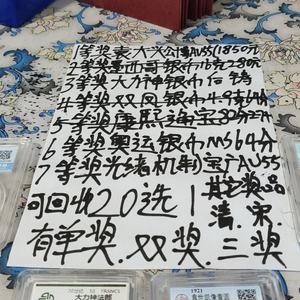 1等奖袁大头公博AU55/1850元
2等奖墨西哥银币16克280元
3等奖大力神银币后铸
4等奖双凤银币4.9克
5等奖康熙通宝
6等奖奥运银币MS64分
7等奖光绪机制宝广AU55
可回收20选1
其它奖品
清.宋
有单奖.双奖.三奖
FRANCS
大力神法郎
1921